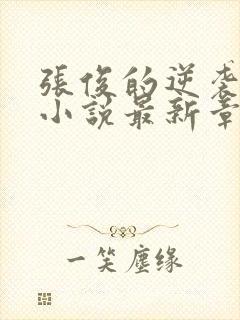 張俊的逆袭
小說最新章
一笑塵缘